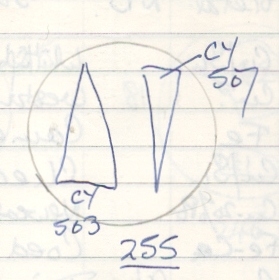 CY
507
CY
503
255